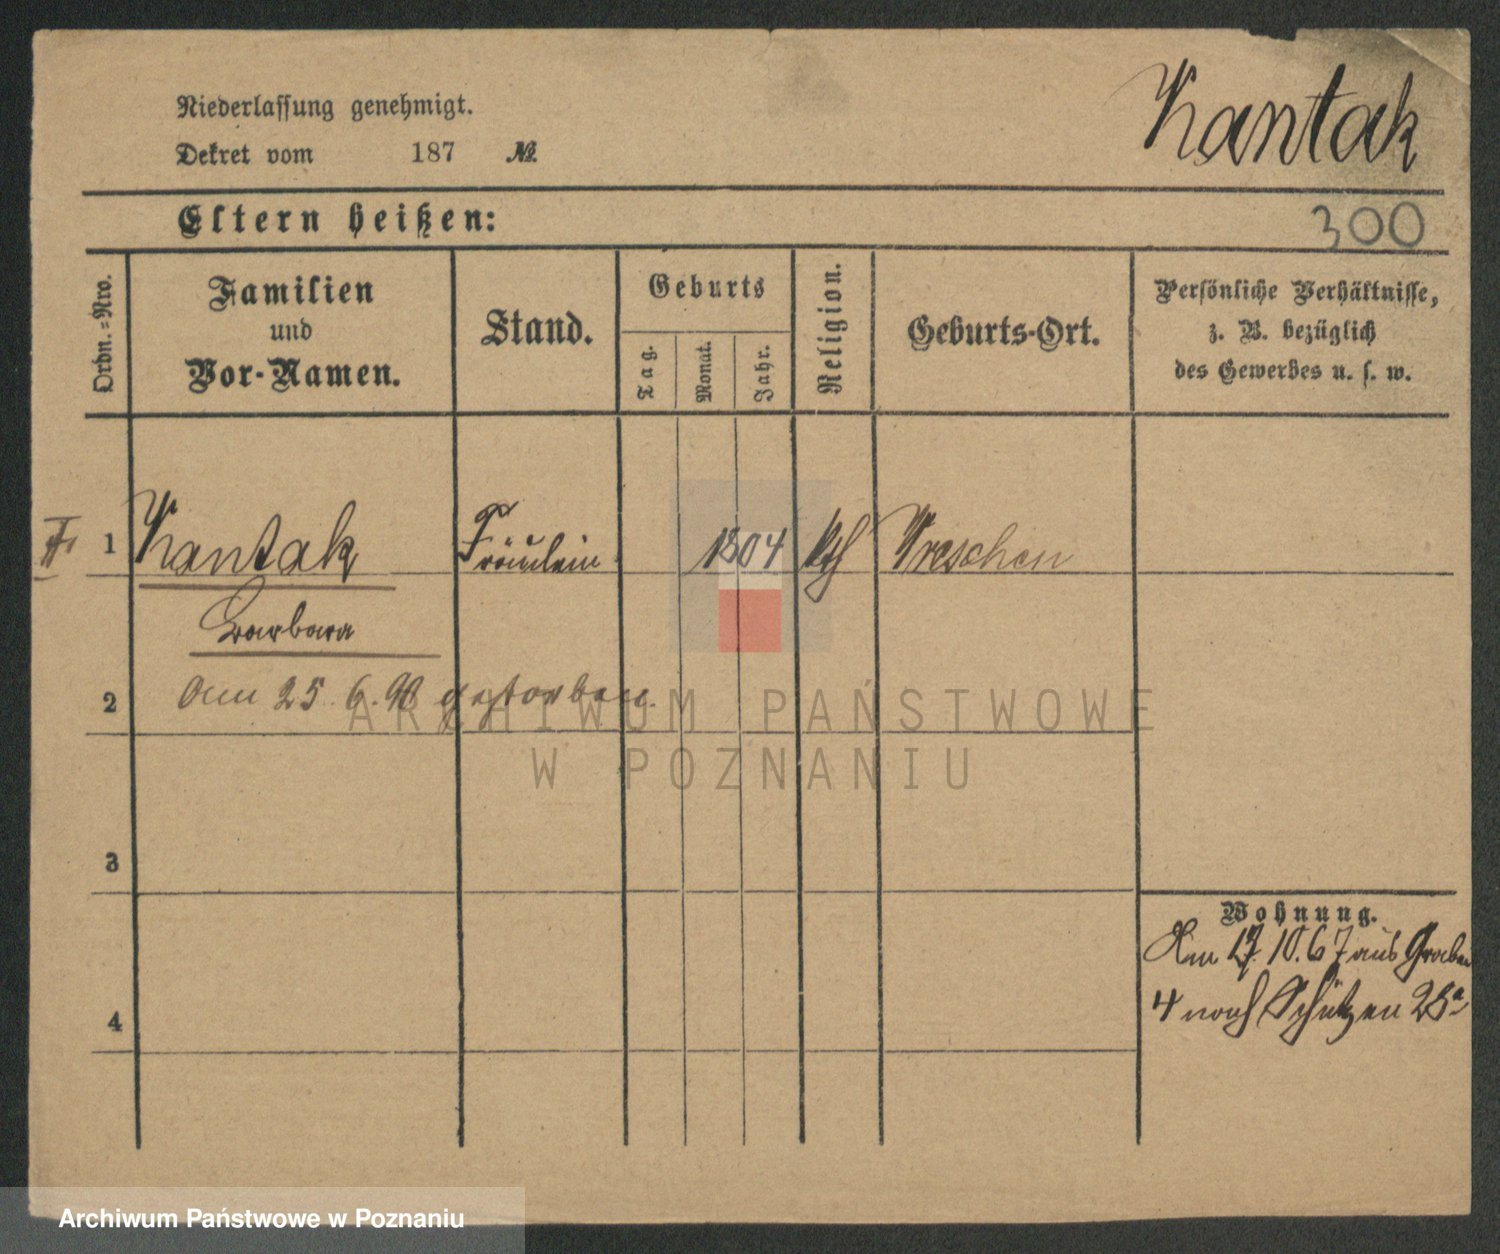 Niederlassung genehmigt.
Kantak
Dekret vom 187 №.
Eltern heißen:
300
Ordn.=Nro.
Familien
und
Vor-Namen.
Stand.
Geburts
Tag.
Monat.
Jahr.
Religion.
Geburts-Ort.
Persönliche Verhältnisse,
z. B. bezüglich
des Gewerbes u. s. w.
1 Kantak Fräulein 1804 kth Wreschen
Barbara
2 am 25.6.90 gestorben.
ARCHIWUM PAŃSTWOWE
W POZNANIU
3
Wohnung.
Am 17.10.67 aus Graben
4 nach Schützen 25a
4
Archiwum Państwowe w Poznaniu